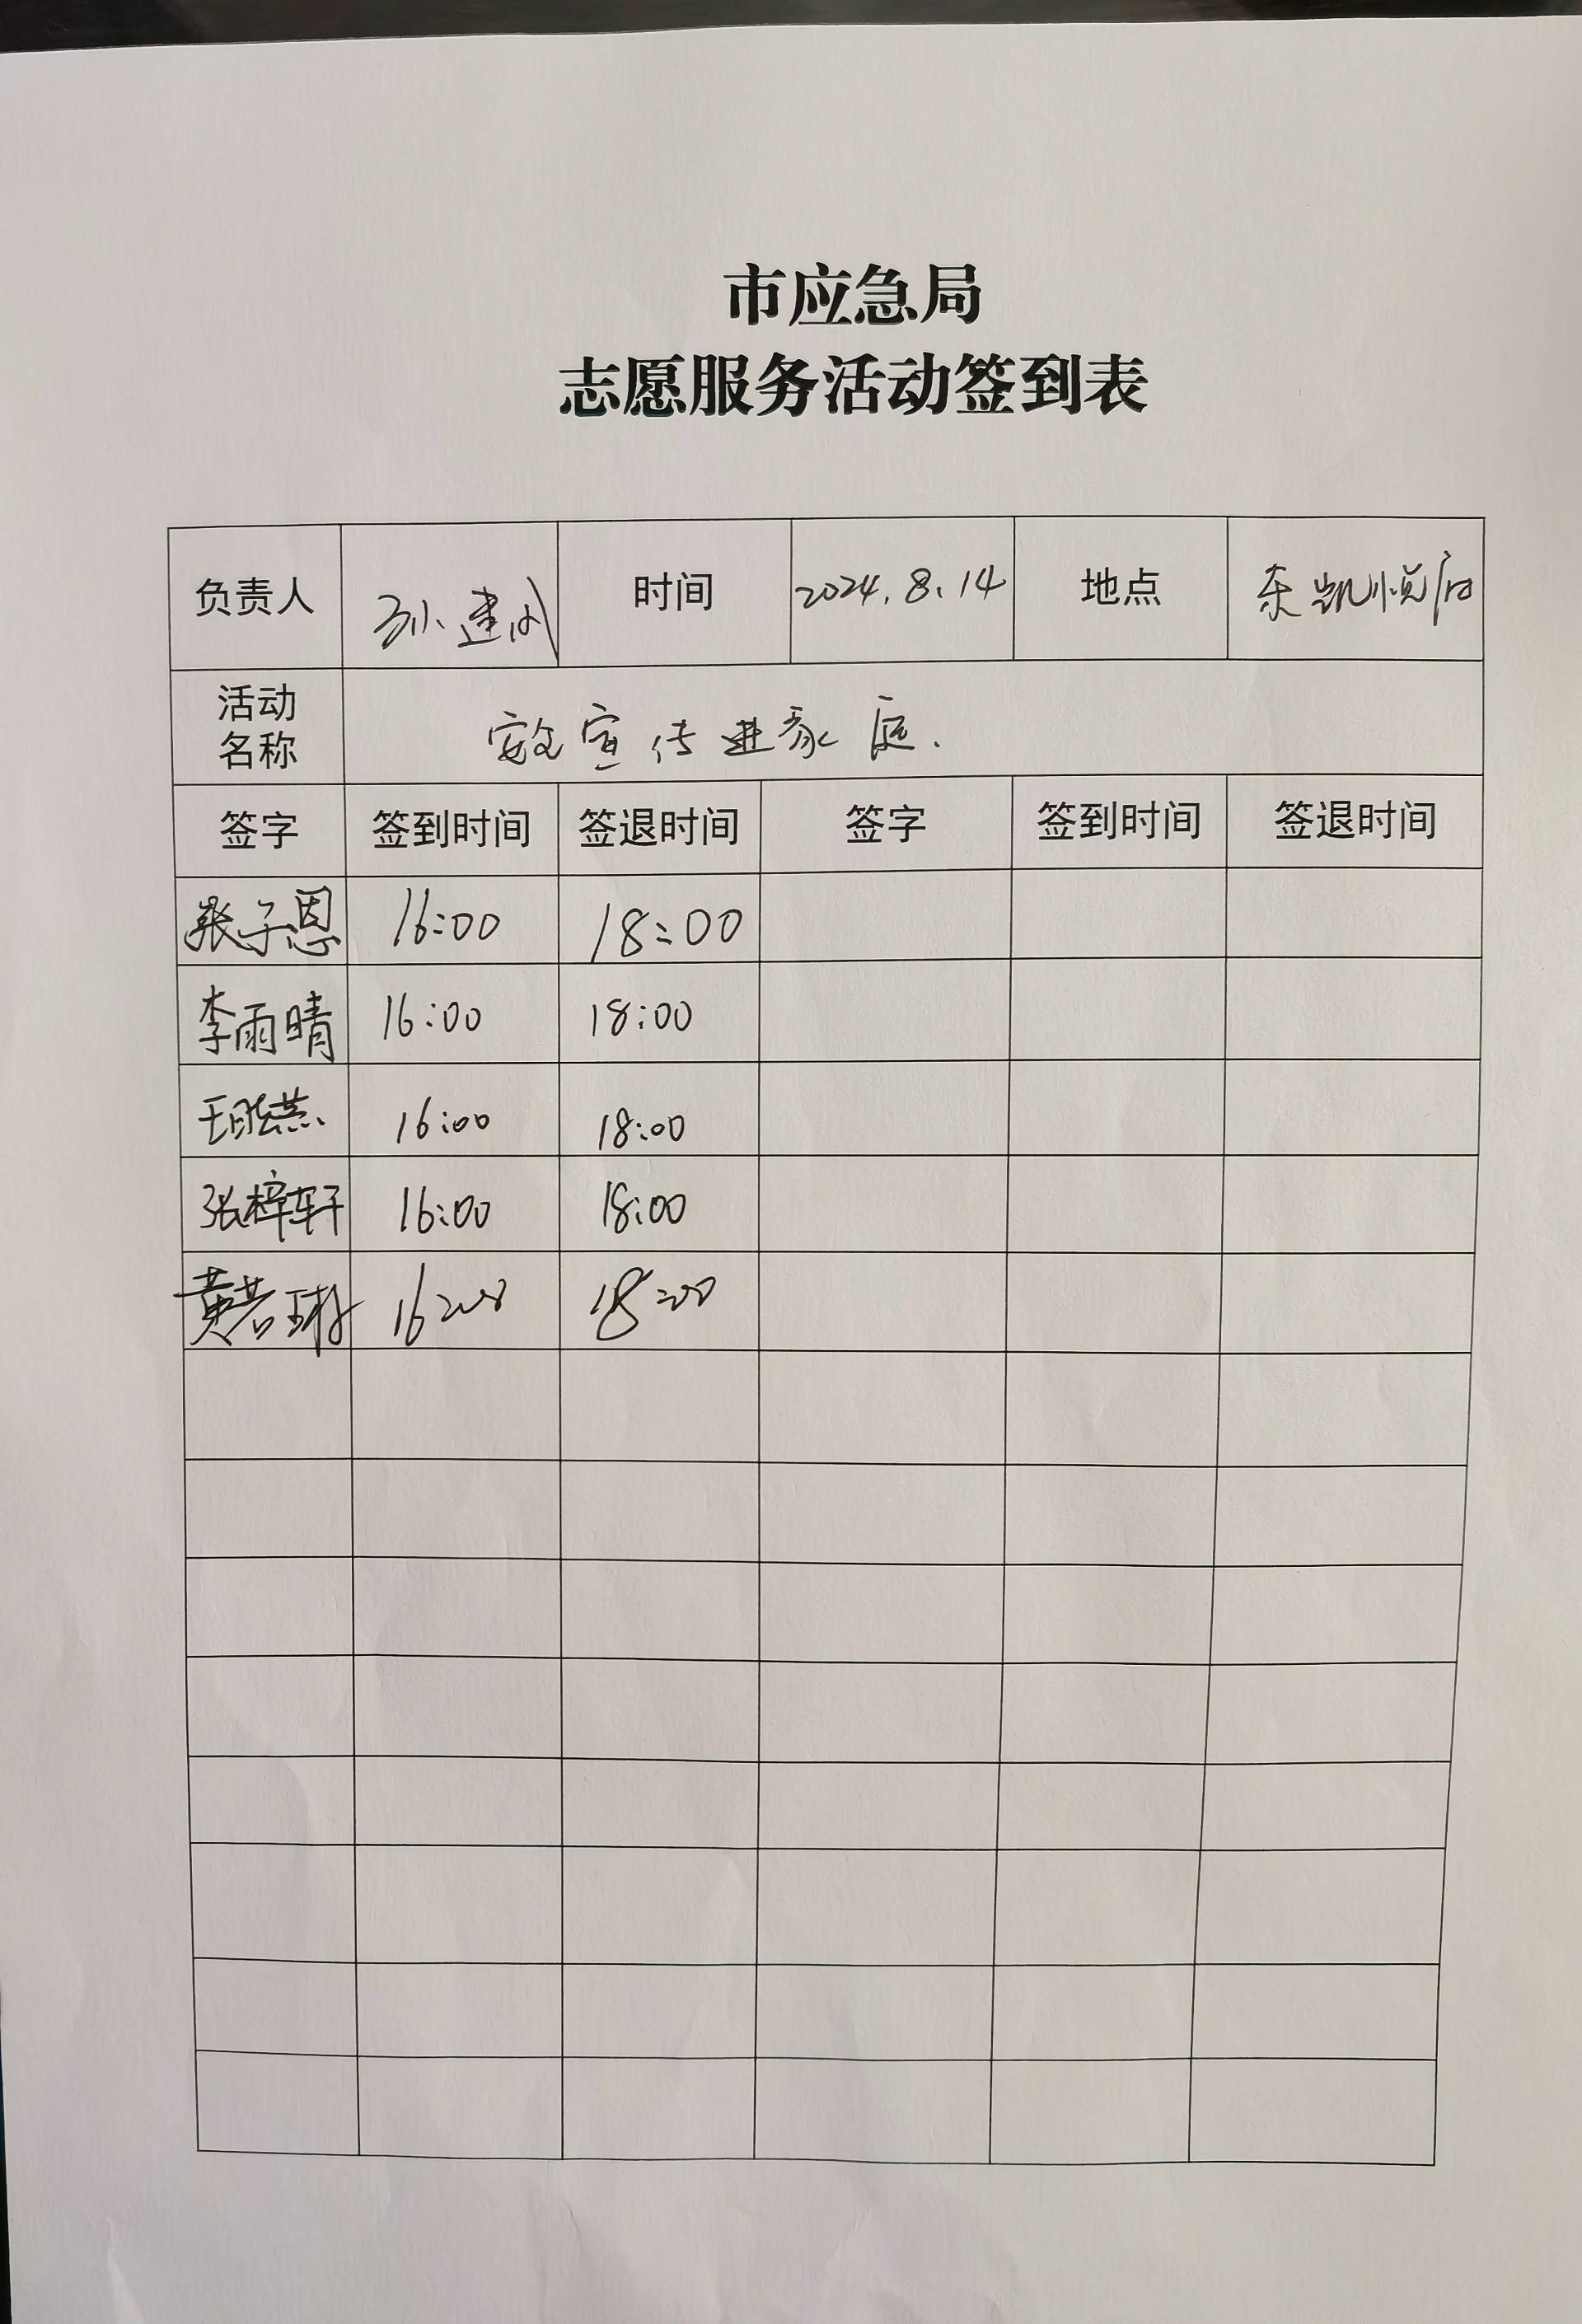 市应急局
志愿服务活动签到表
负责人 孙建 时间 2024.8.14 地点 东凯悦府
活动名称 安全宣传进家庭.
签字 签到时间 签退时间 签字 签到时间 签退时间
张子恩 16:00 18:00
李雨晴 16:00 18:00
王 16:00 18:00
张梓轩 16:00 18:00
黄若琳 16:00 18:00